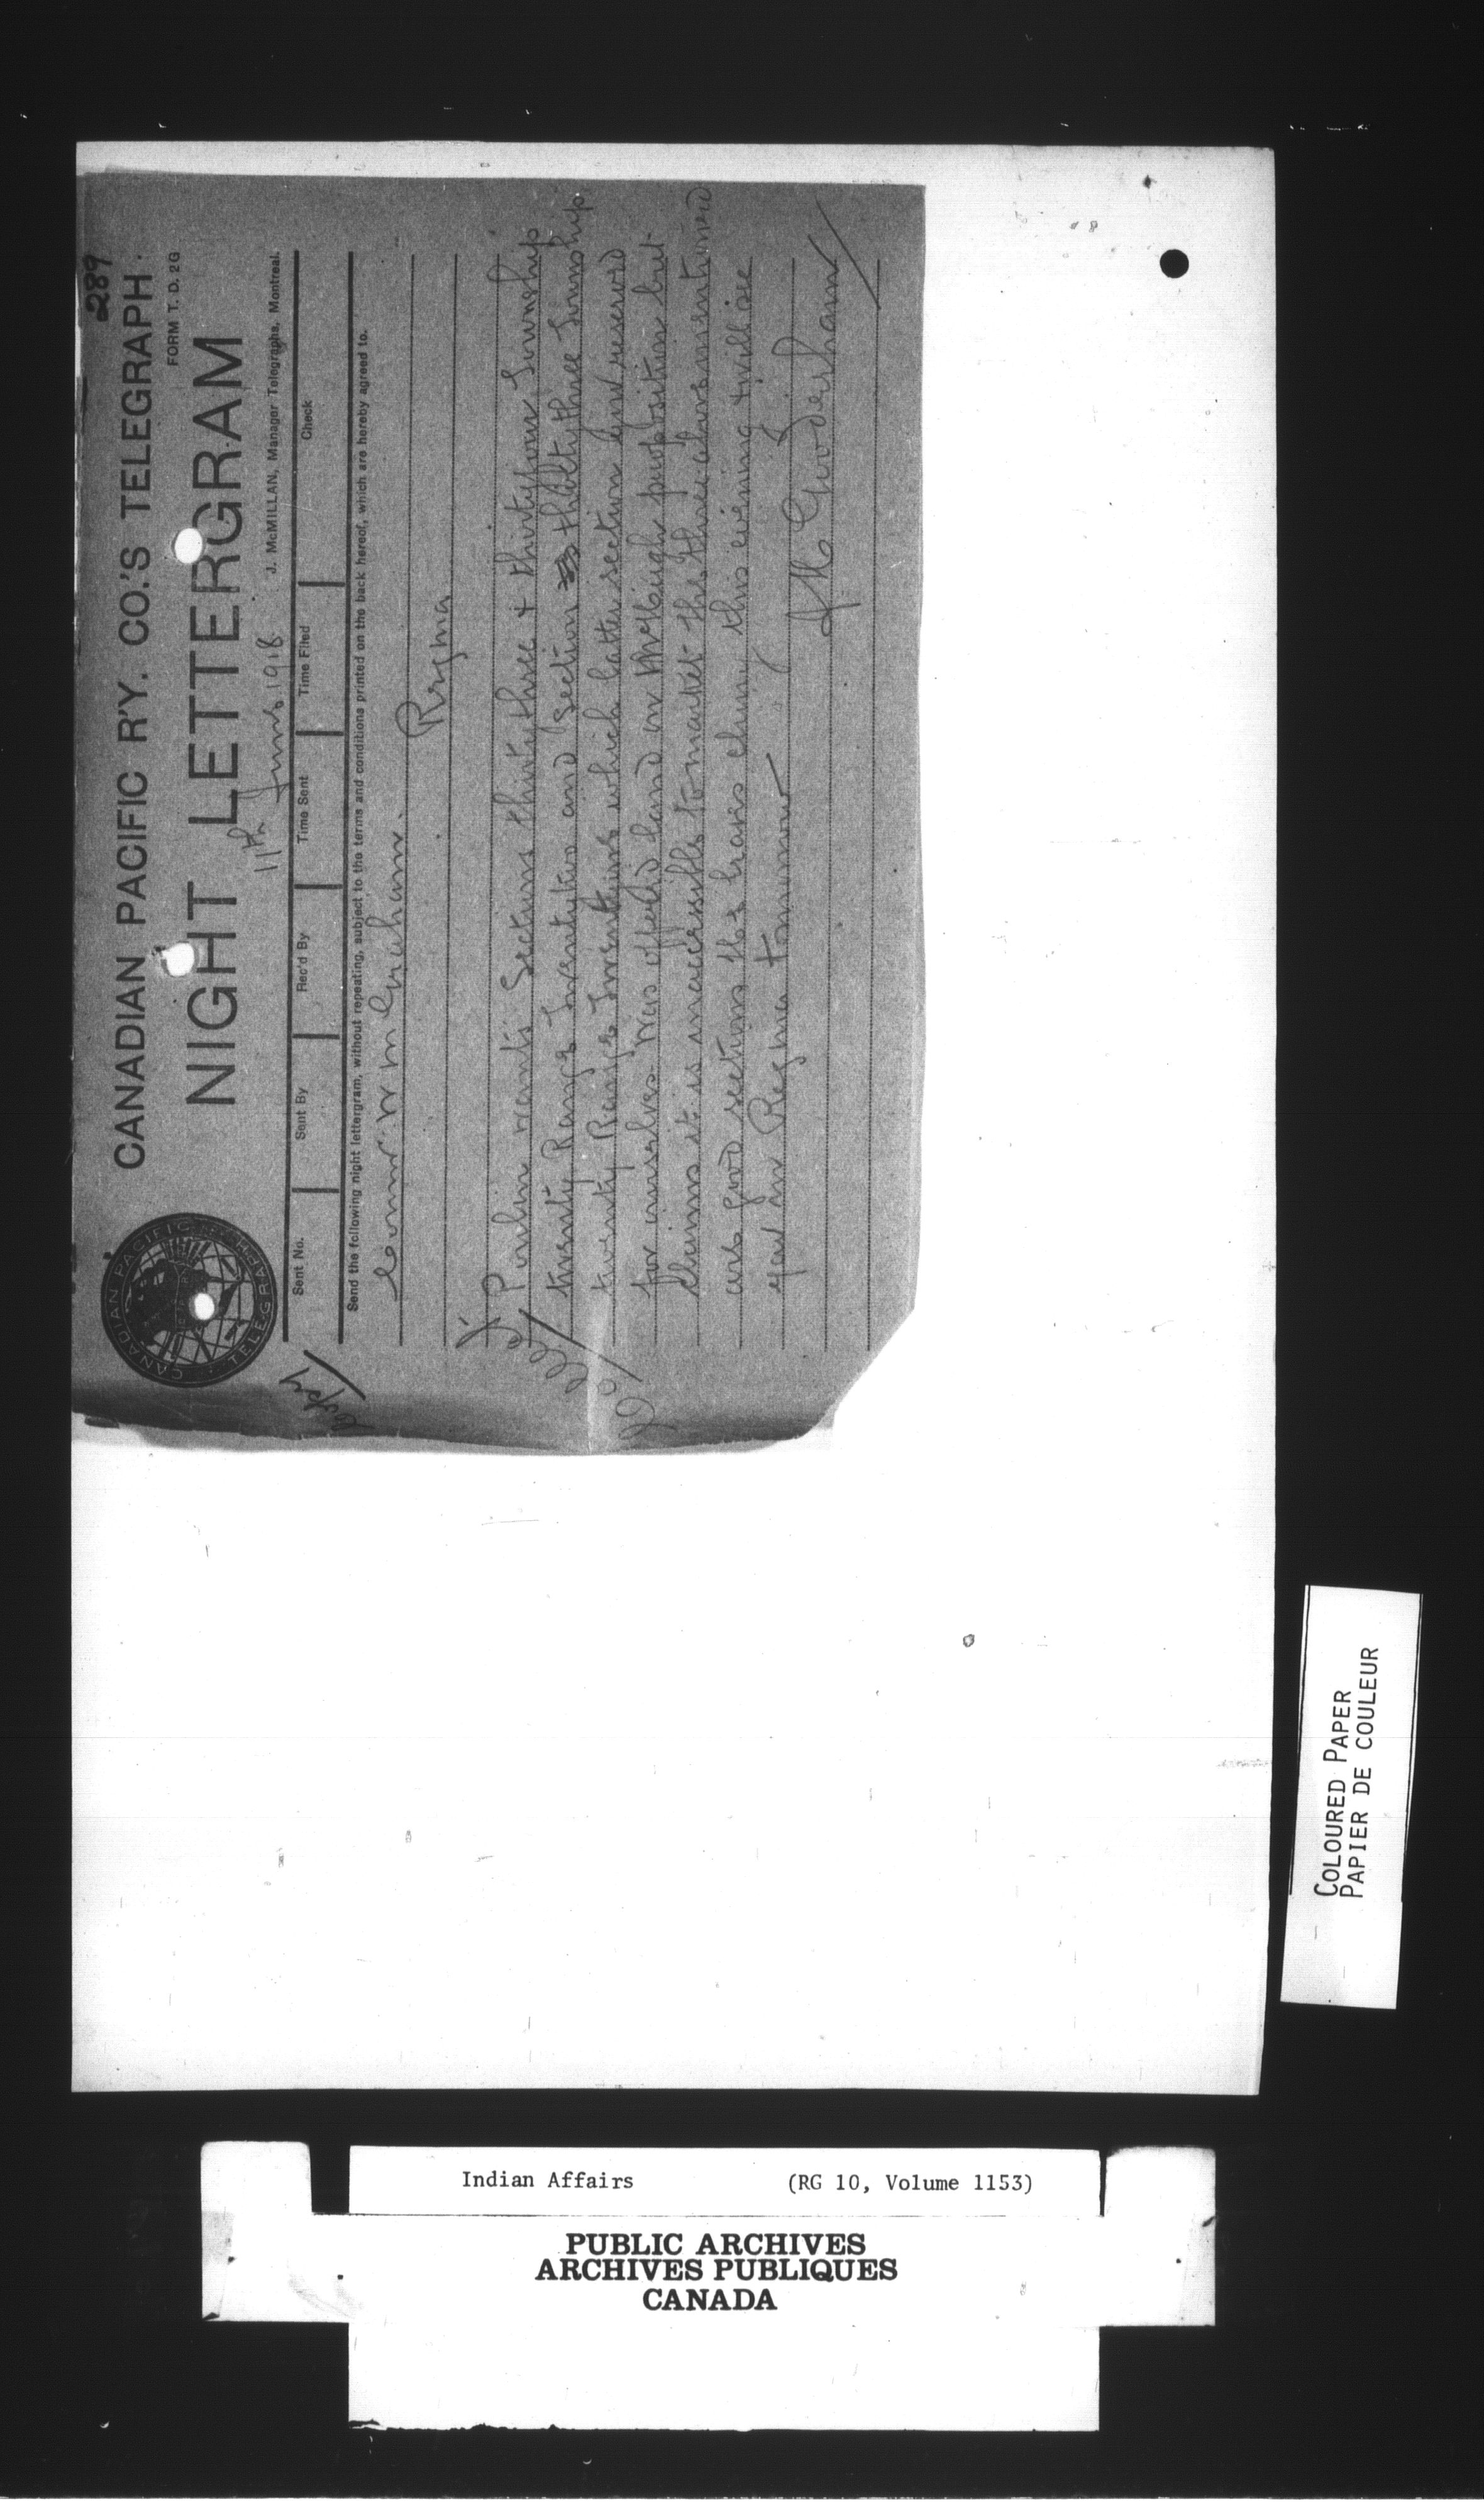 289
CANADIAN PACIFIC R'Y. CO.'S TELEGRAPH
FORM T. D. 2G
NIGHT LETTERGRAM
J. McMILLAN, Manager Telegraphs, Montreal.
11th June 1918
Sent No. Sent By Rec'd By Time Sent Time Filed Check
Send the following night lettergram, without repeating, subject to the terms and conditions printed on the back hereof, which are hereby agreed to.
Commr. W M Graham.
Regina
Poulin wants Sections thirty three + thirty four Township
twenty Range Twenty two and Section thirty three Township
twenty Range Twenty two which latter section you reserved
for ourselves was offered land on proposition but
claims it is inaccessible to market the three above mentioned
are good sections leaves clury this evening + will see
you in Regina tomorrow
J H Gooderham
CANADIAN PACIFIC TELEGRAPH
COLOURED PAPER
PAPIER DE COULEUR
Indian Affairs (RG 10, Volume 1153)
PUBLIC ARCHIVES
ARCHIVES PUBLIQUES
CANADA